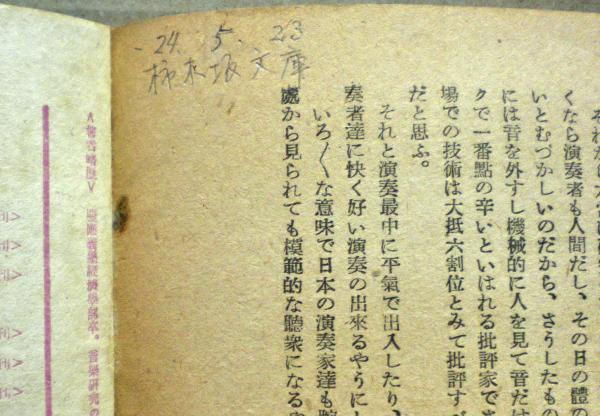 -24. 5. 23
柿木坂文庫
くなら演奏者も人間だし、その日の體の
いとむづかしいのだから、さうしたもの
には音を外すし機械的に人を見て音だけ
クで一番點の辛いといはれる批評家で
場での技術は大抵六割位とみて批評す
だと思ふ。
それと演奏最中に平氣で出入したり、
奏者達に快く好い演奏の出來るやうに
いろ〱な意味で日本の演奏家達も
處から見られても模範的な聽衆になる